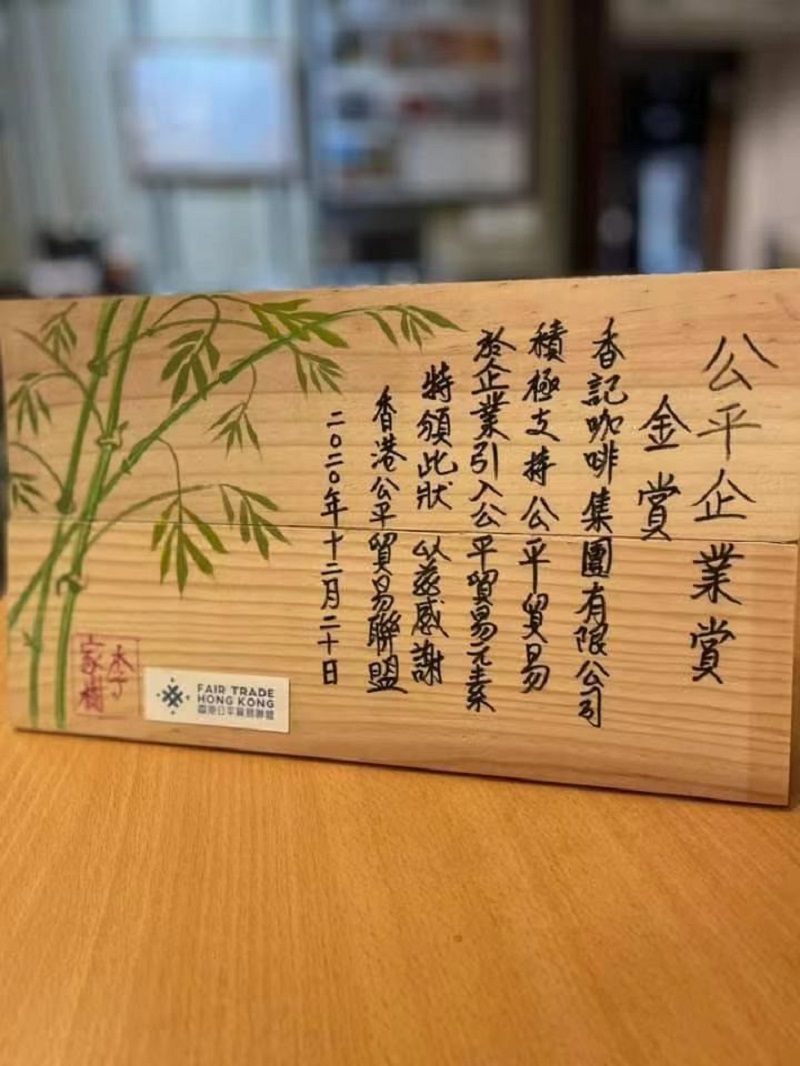 公平企業賞
金賞
香記咖啡集團有限公司
積極支持公平貿易
於企業引入公平貿易元素
特頒此狀 以茲感謝
香港公平貿易聯盟
二〇二〇年十二月二十日
FAIR TRADE
HONG KONG
香港公平貿易聯盟